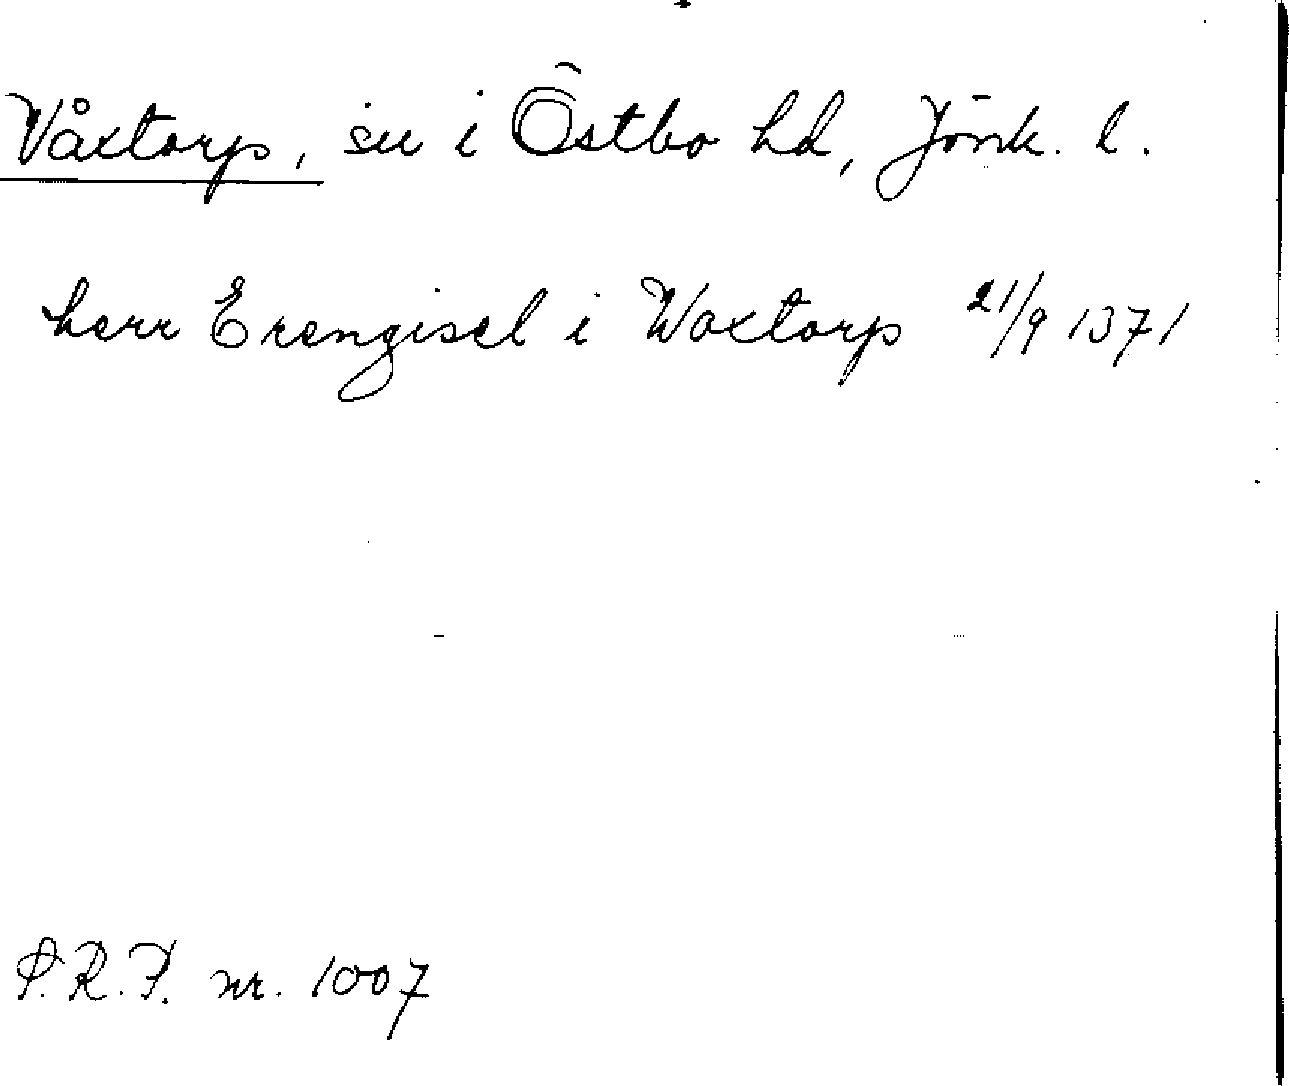 Våxtorp, sn i Östbo hd, Jönk. l.
herr Erengisel i Woxtorp 21/9 1371
P.R.F. nr. 1007